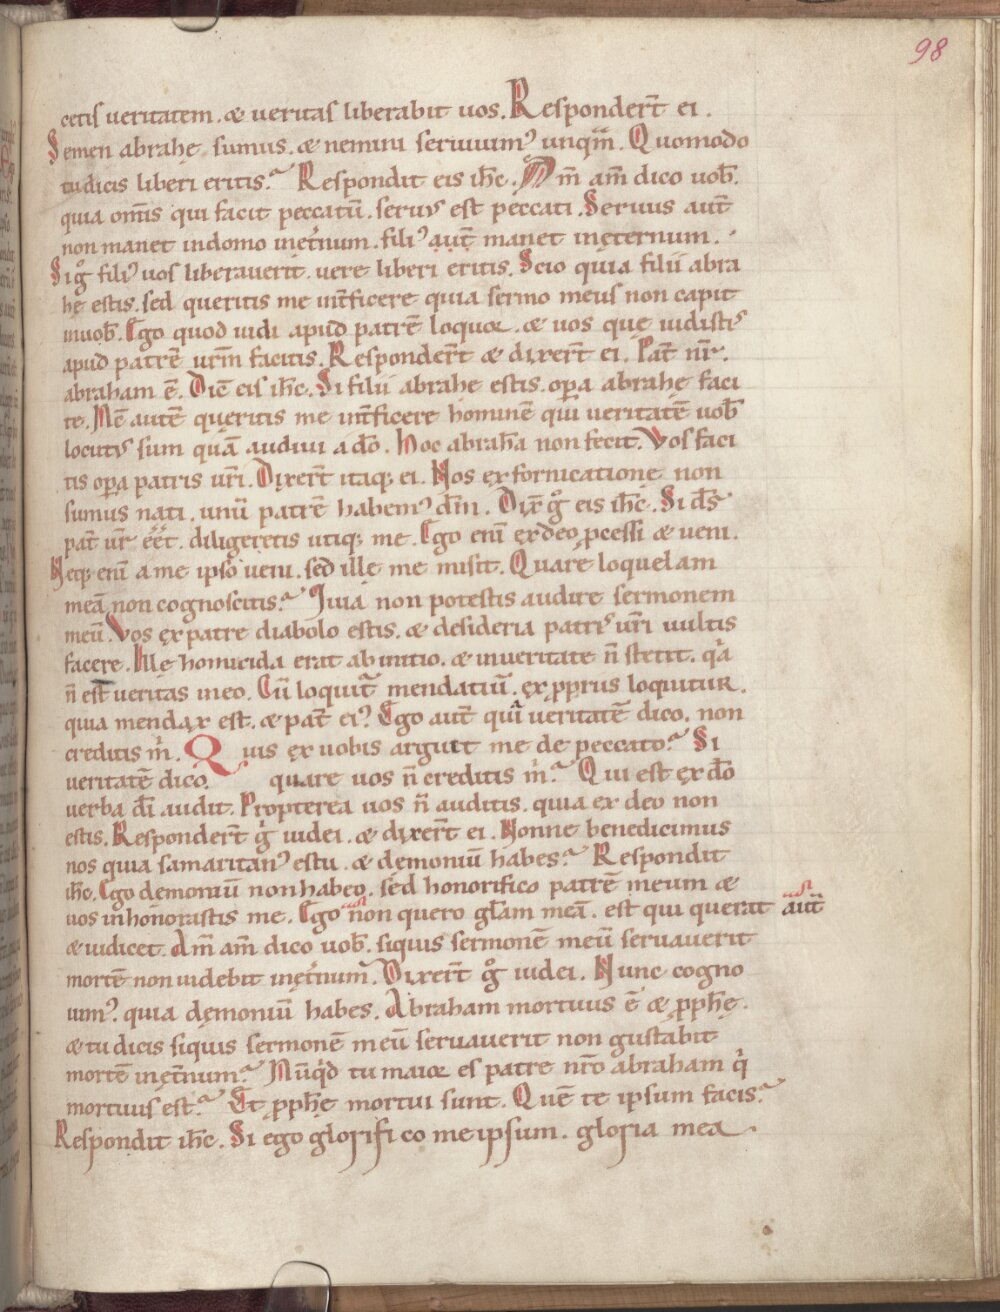 98
cetis ueritatem. & ueritas liberabit uos. Responder̄t ei.
Semen abrahę sumus. & nemini seruiuim᾽ unqm̄. Quomodo
tu dicis liberi eritis? Respondit eis ih̄c. Am̄ am̄ dico uob̄.
quia om̄is qui facit peccatū. seruus est peccati. Seruus aut̄
non manet in domo inęt̄num. fili᾽ aut̄ manet in ęternum.
Sigͦ fili᾽ uos liberauerit. uere liberi eritis. Scio quia filii abra
hę estis. sed queritis me int̄ficere quia sermo meus non capit
in uob̄. Ego quod uidi apud patrē loquor. & uos quę uidistis
apud patrē ur̄m facitis. Responder̄t & dixer̄t ei. Pat̄ nr̄.
abraham ē. Dic̄ eis ih̄c. Si filii abrahę estis. oꝑa abrahę faci
te. Nc̄ autē queritis me int̄ficere hominē qui ueritatē uob̄
locutus sum quā audiui a dō. Hoc abrah̄a non fecit. Vos faci
tis oꝑa patris ur̄i. Dixer̄t itaq; ei. Nos ex fornicatione non
sumus nati. unū patrē habem᾽ dm̄. Dix̄ gͦ eis ih̄c. Si ds̄
pat̄ ur̄ eēt. diligeretis utiq; me. Ego eni ex deo ꝓcessi & ueni.
Neq; eni a me ipso ueni. sed ille me misit. Quare loquelam
meā non cognoscitis? Quia non potestis audire sermonem
meū. Vos ex patre diabolo estis. & desideria patris ur̄i uultis
facere. Ille homicida erat ab initio. & in ueritate n̄ stetit. qͥa
n̄ est ueritas in eo. Cū loquit̄ mendatiū. ex ꝓprus loquitur.
quia mendax est. & pat̄ ei᾽. Ego aut̄ quia ueritatē dico. non
creditis m̄. Quis ex uobis arguet me de peccato? Si
ueritatē dico. quare uos n̄ creditis m̄? Qui est ex dō
uerba dī audit. Propterea uos n̄ auditis. quia ex deo non
estis. Responder̄t gͦ iudei. & dixer̄t ei. Nonne benedicimus
nos quia samaritan᾽ es tu. & demoniū habes? Respondit
ih̄c. Ego demoniū non habeo. sed honorifico patrē meum &
uos inhonorastis me. Ego non quero gl̄am meā. est qui querat aut̄
& iudicet. Am̄ am̄ dico uob̄. siquis sermonē meū seruauerit
mortē non uidebit inęt̄num. Dixer̄t gͦ iudei. Nunc cogno
uim᾽. quia dęmoniū habes. Abraham mortuus ē & ꝓph̄ę.
& tu dicis siquis sermonē meū seruauerit non gustabit
mortē inęt̄num? Nūqͥd tu maior es patre nr̄o abraham qͥ
mortuus est? Et ꝓph̄ę mortui sunt. Quē te ipsum facis?
Respondit ih̄c. Si ego glorifico me ipsum. gloria mea